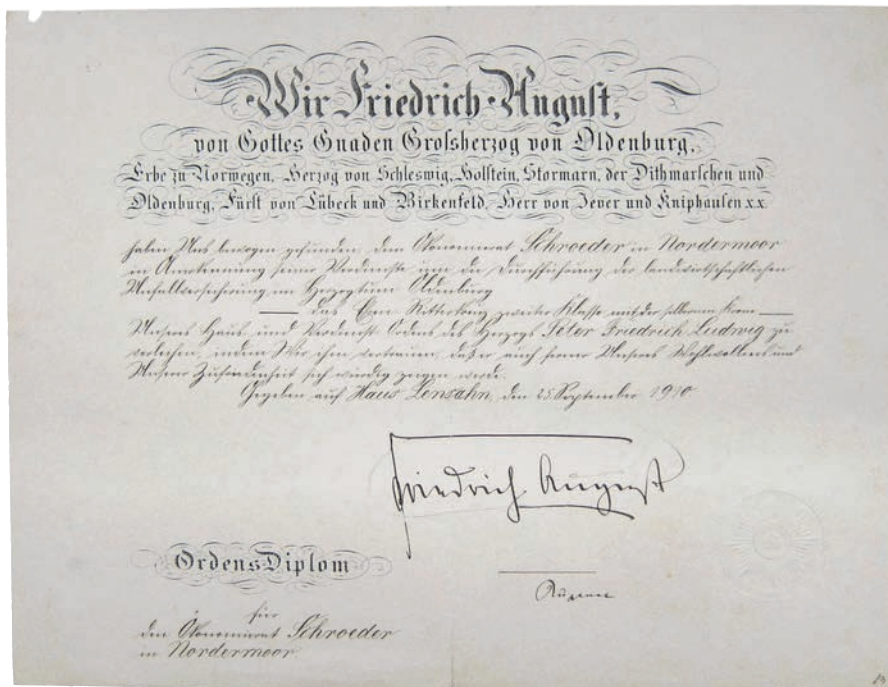 Wir Friedrich August,
von Gottes Gnaden Großherzog von Oldenburg,
Erbe zu Norwegen, Herzog von Schleswig, Holstein, Stormarn, der Dithmarschen und
Oldenburg, Fürst von Lübeck und Birkenfeld, Herr von Jever und Kniphausen xx
haben Uns bewogen gefunden, dem Ökonomierat Schroeder in Nordermoor
in Anerkennung seiner Verdienste um die Durchführung der landwirtschaftlichen
Unfallversicherung im Herzogtum Oldenburg
— das Ehren Ritterkreuz zweiter Klasse mit der silbernen Krone —
Unseres Haus und Verdienst Ordens des Herzogs Peter Friedrich Ludwig zu
verleihen, indem Wir ihm vertrauen, daß er auch ferner Unseres Wohlwollens und
Unserer Zufriedenheit sich würdig zeigen werde.
Gegeben auf Haus Lensahn, den 25. September 1910
Friedrich August
Ordens Diplom
für
den Ökonomierat Schroeder
in Nordermoor.